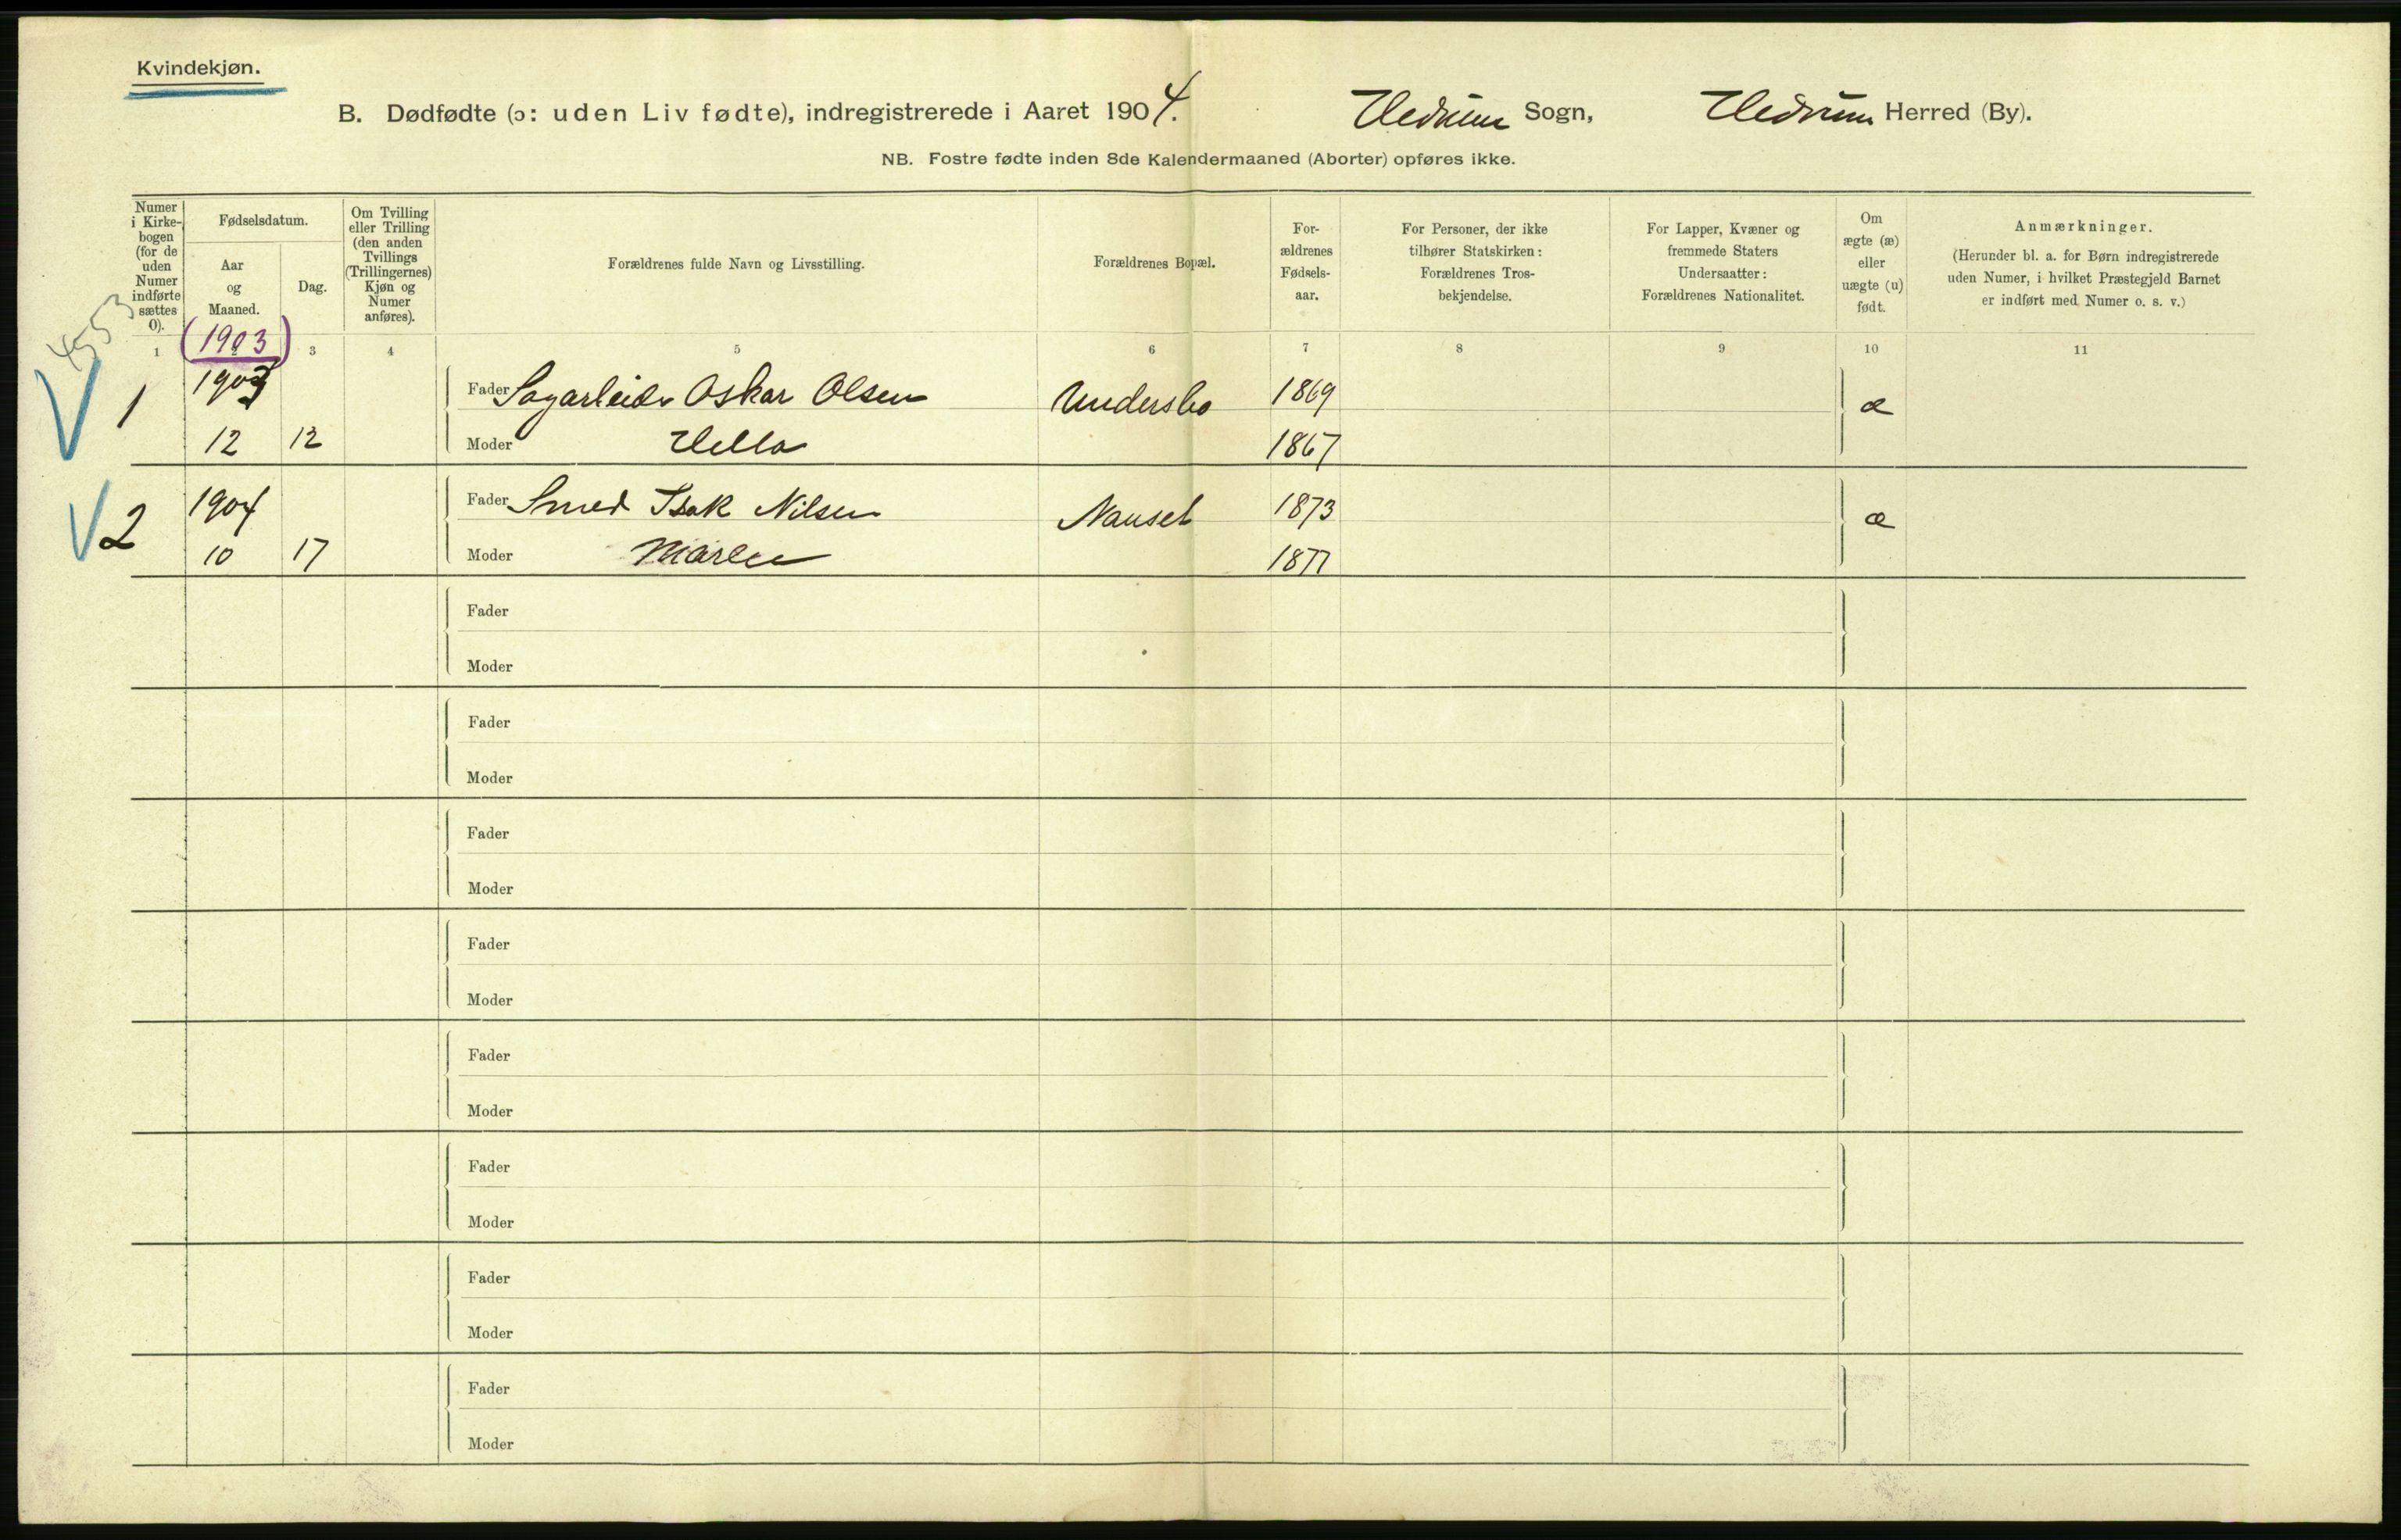 Kvindekjøn.
B. Dødfødte (ɔ: uden Liv fødte), indregistrerede i Aaret 1904. Hedrum Sogn, Hedrum Herred (By).
NB. Fostre fødte inden 8de Kalendermaaned (Aborter) opføres ikke.
Numer i Kirke-bogen (for de uden Numer indførte sættes 0).
Fødselsdatum.
Aar og Maaned.
Dag.
Om Tvilling eller Trilling (den anden Tvillings (Trillingernes) Kjøn og Numer anføres).
Forældrenes fulde Navn og Livsstilling.
Forældrenes Bopæl.
For-ældrenes Fødsels-aar.
For Personer, der ikke tilhører Statskirken: Forældrenes Tros-bekjendelse.
For Lapper, Kvæner og fremmede Staters Undersaatter: Forældrenes Nationalitet.
Om ægte (æ) eller uægte (u) født.
Anmærkninger.
(Herunder bl. a. for Børn indregistrerede uden Numer, i hvilket Præstegjeld Barnet er indført med Numer o. s. v.)
4553
(1903)
1 2 3 4 5 6 7 8 9 10 11
1 1903 Fader Sagarbeider Oskar Olsen Undersbo 1869 æ
12 12 Moder Hella 1867
2 1904 Fader Smed Isak Nilsen Nanset 1873 æ
10 17 Moder Maren 1877
Fader
Moder
Fader
Moder
Fader
Moder
Fader
Moder
Fader
Moder
Fader
Moder
Fader
Moder
Fader
Moder